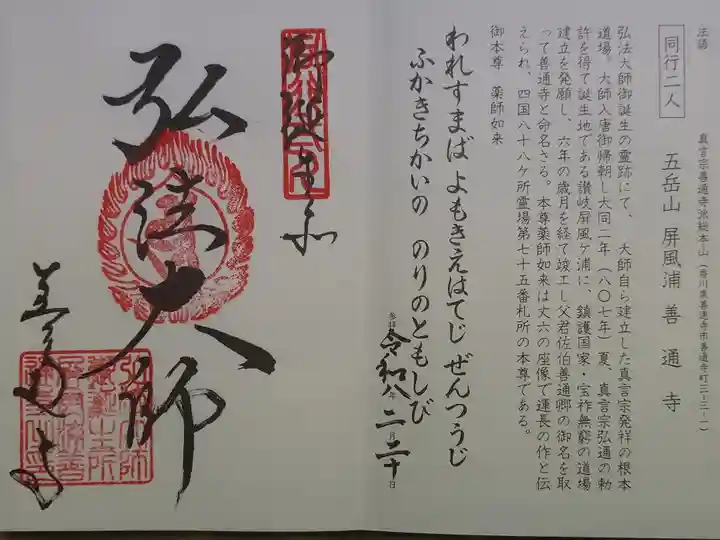 法語
真言宗善通寺派総本山（香川県善通寺市善通寺町三-三-一）
同行二人 五岳山 屏風浦 善通寺
弘法大師御誕生の霊跡にて、大師自ら建立した真言宗発祥の根本
道場。大師入唐御帰朝し大同二年（八〇七年）夏、真言宗弘通の勅
許を得て誕生地である讃岐屏風ケ浦に、鎮護国家・宝祚無窮の道場
建立を発願し、六年の歳月を経て竣工し父君佐伯善通卿の御名を取
って善通寺と命名さる。本尊薬師如来は丈六の座像で運長の作と伝
えられ、四国八十八ケ所霊場第七十五番札所の本尊である。
御本尊 薬師如来
われすまば よもきえはてじ ぜんつうじ
ふかきちかいの のりのともしび
参拝 令和八年二月二十日
御誕生所
弘法大師
善通寺